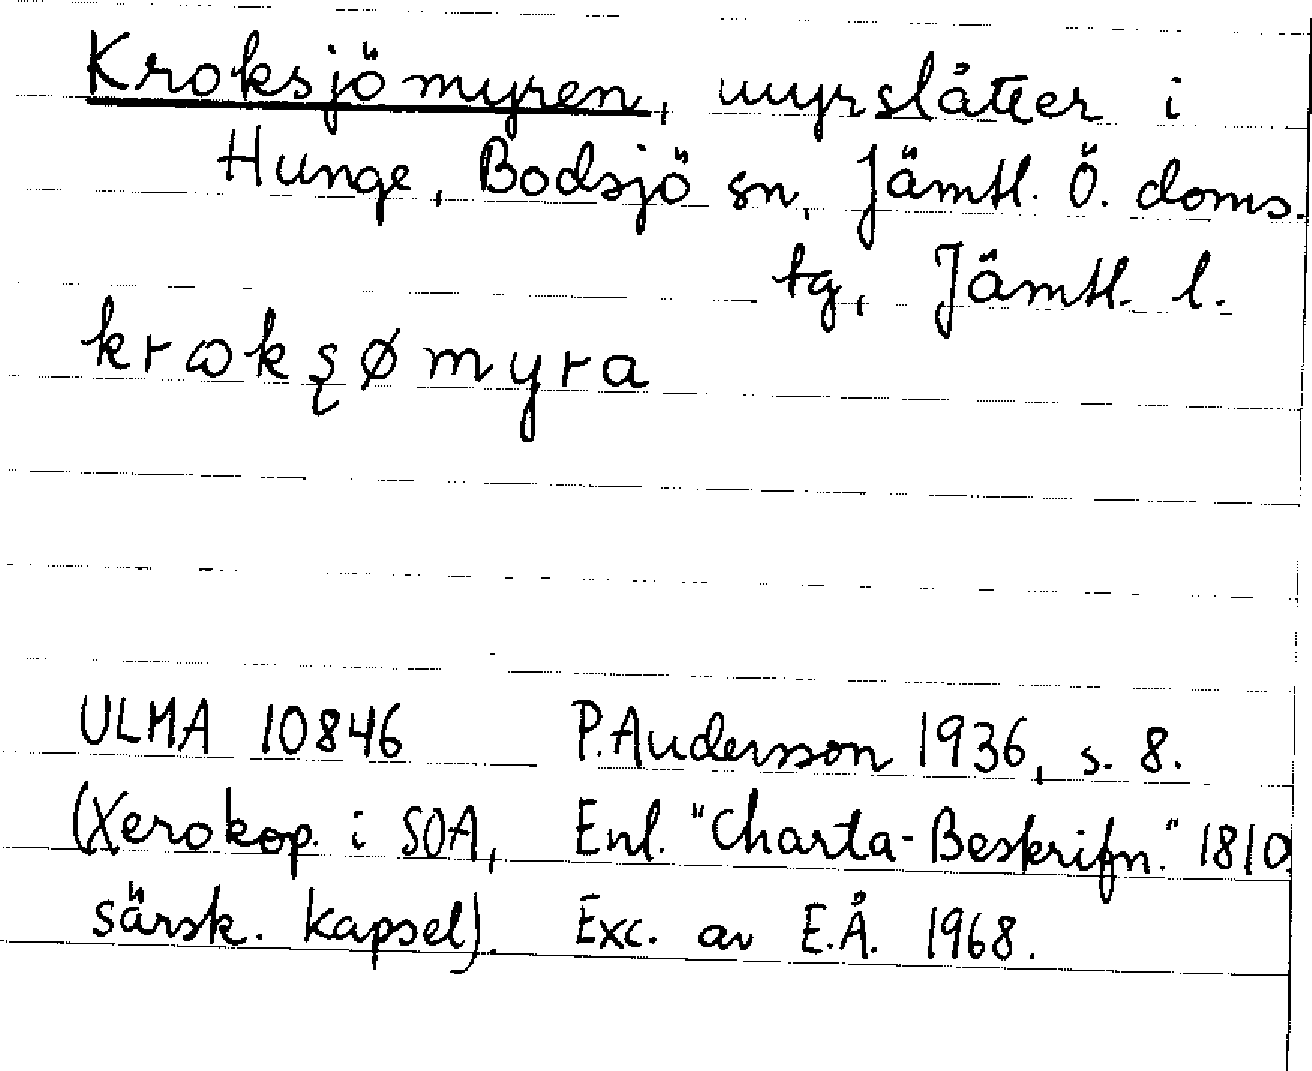 Kroksjömyren, myrslåtter i
Hunge, Bodsjö sn, Jämtl. Ö. doms.
tg, Jämtl. l.
krωkʂømyra
ULMA 10846 P. Andersson 1936, s. 8.
(Xerokop. i SOA, Enl. "Charta-Beskrifn." 1810.
särsk. kapsel). Exc. av E.Å. 1968.